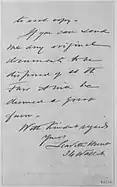 to each copy.
If you can send
me any original
documents to be
disposed of at the
Fair it will be
deemed a great
favor.
With kindest regards
Yours